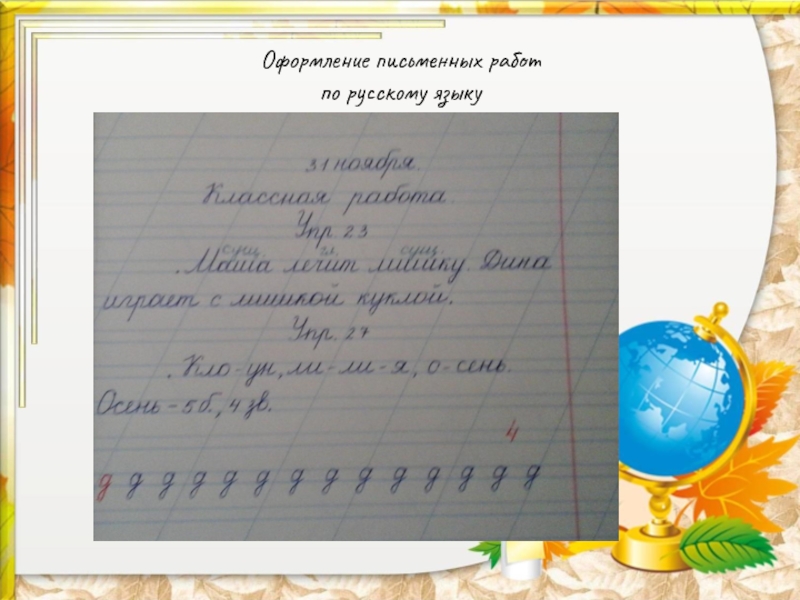 Оформление письменных работ
по русскому языку
31 ноября.
Классная работа.
Упр. 23
сущ. гл. сущ.
Маша лечит мишку. Дина
играет с мишкой куклой.
Упр. 27
Кло-ун, ли-ли-я, о-сень.
Осень – 5 б., 4 зв.
4
д д д д д д д д д д д д д д